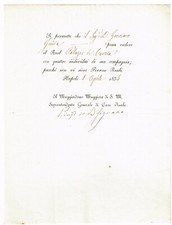 Si permette che il Sig.
possa vedere
il Real Palazzo di Caserta
con quattro individui di sua compagnia,
purchè non vi sieno Persone Reali.
Napoli 1 Aprile 1834
Il Maggiordomo Maggiore di S. M.
Soprintendente Generale di Casa Reale